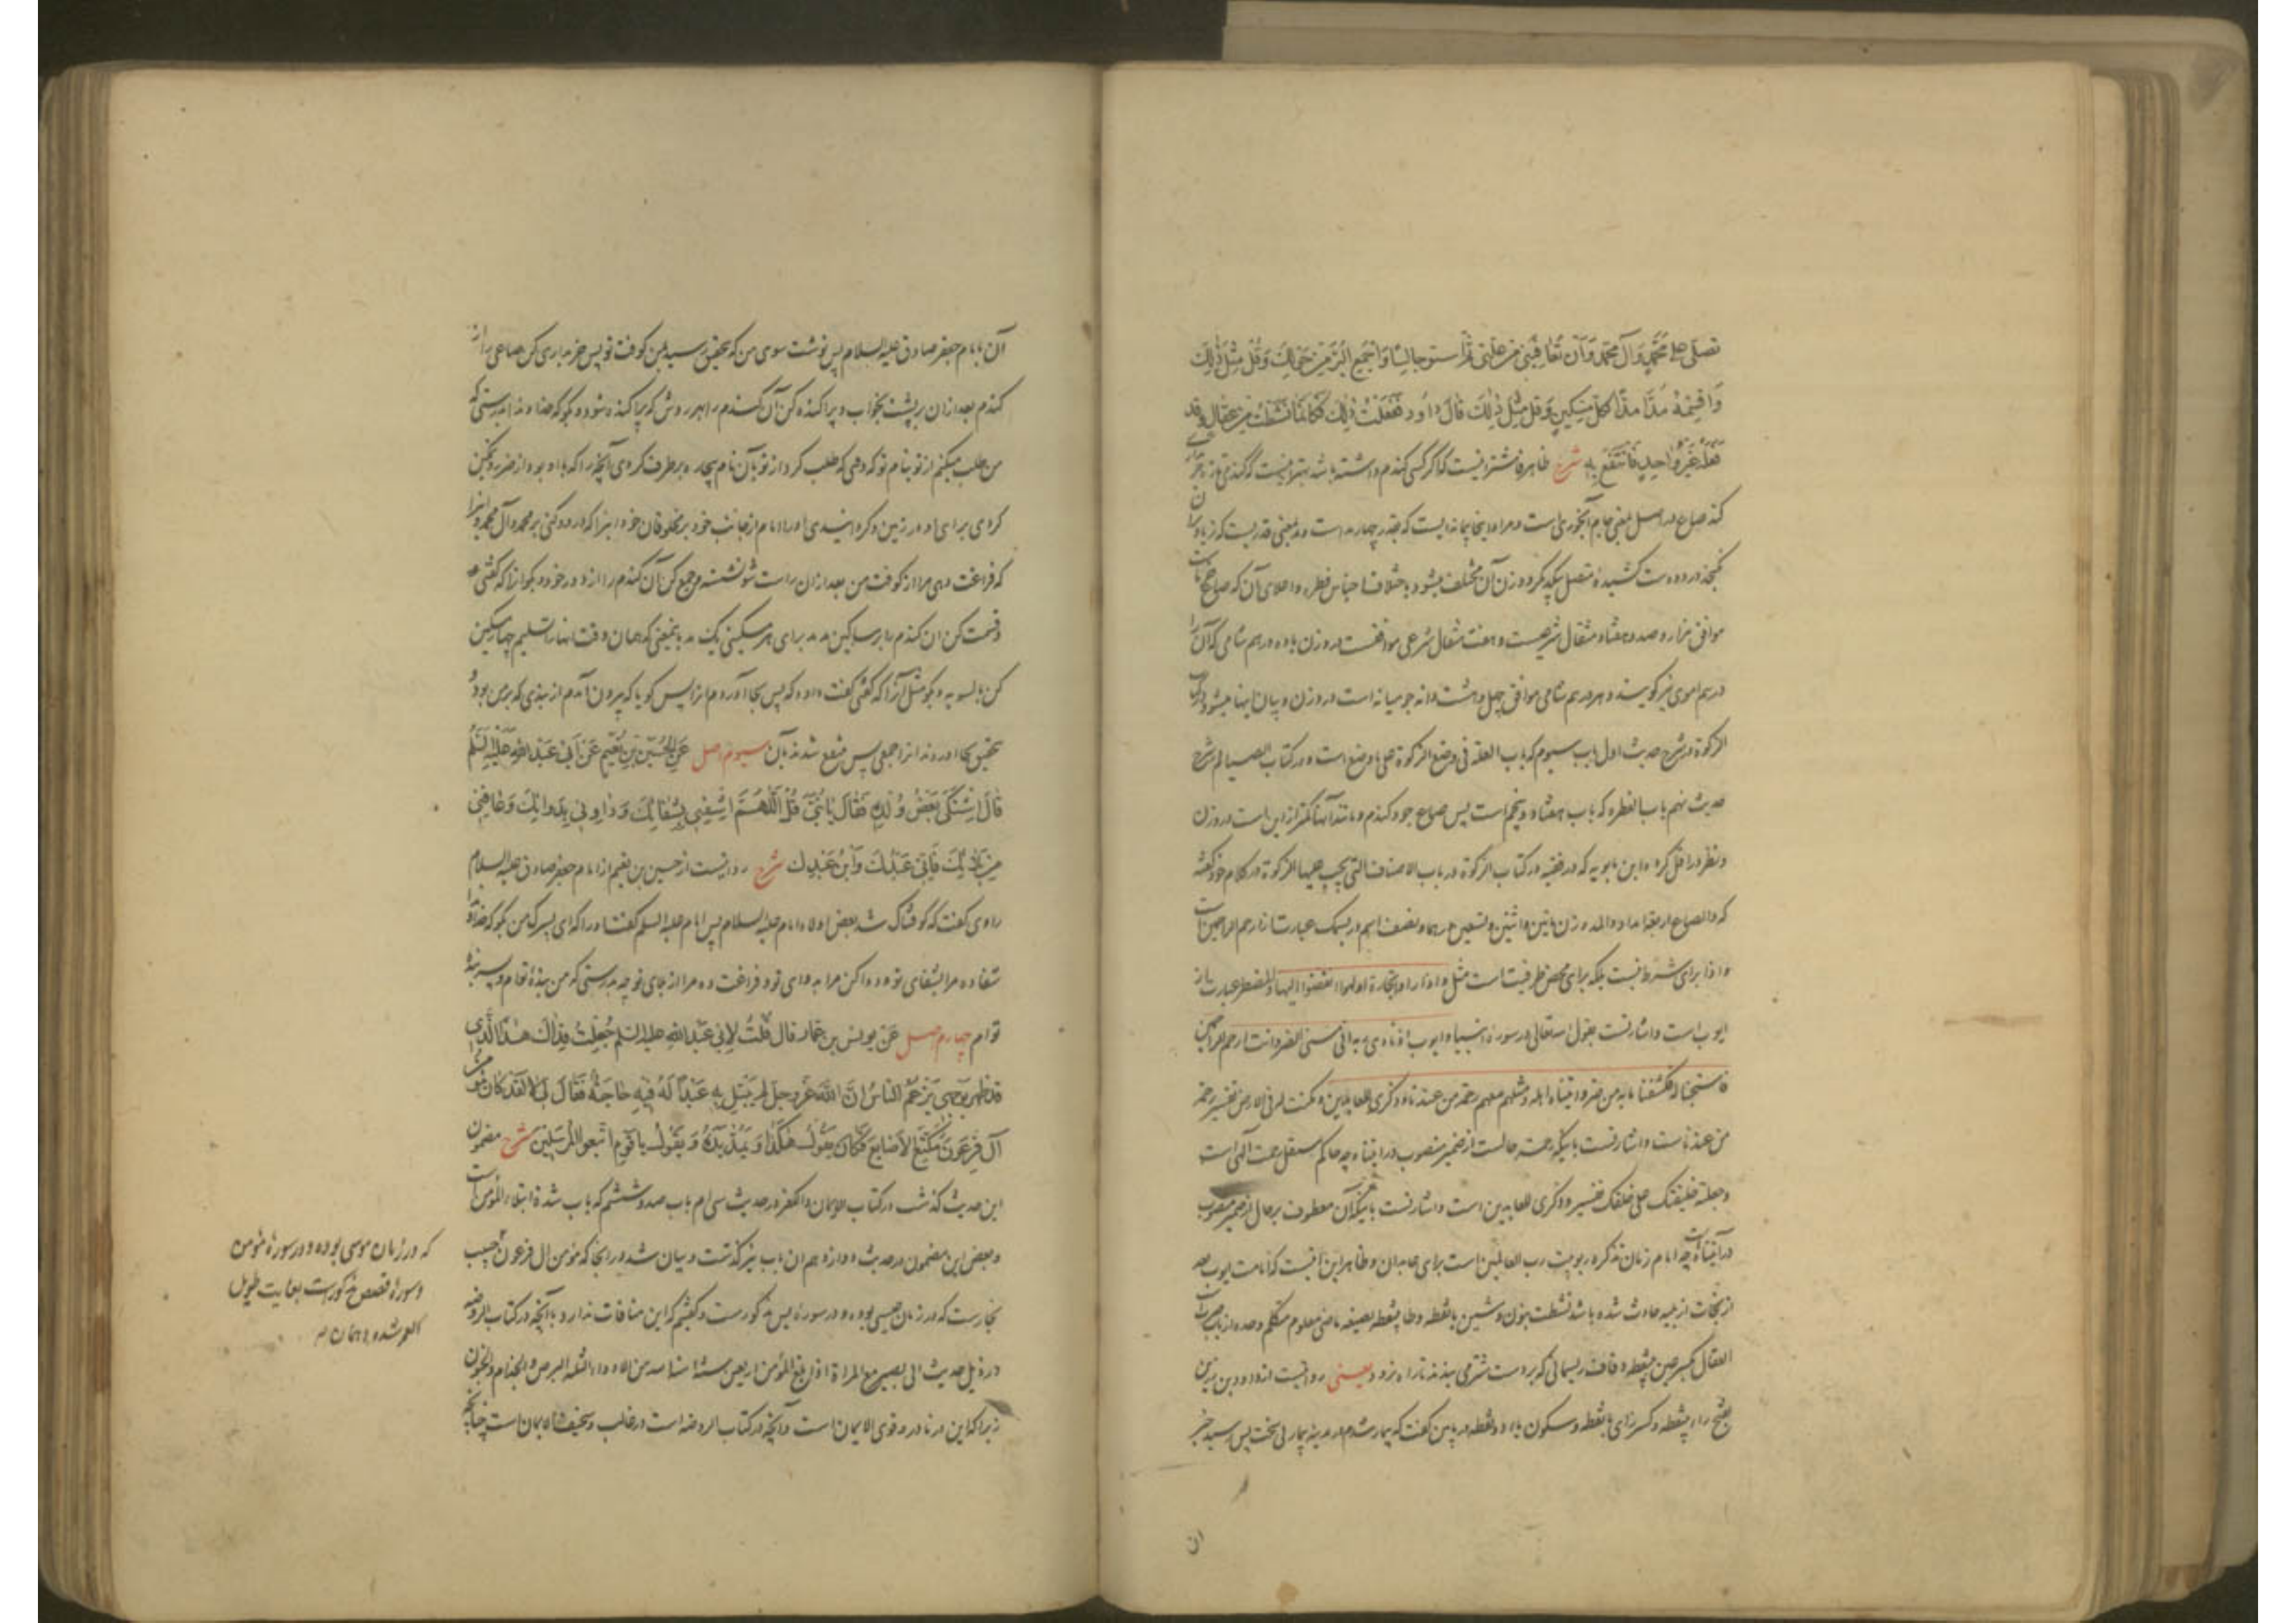 تصلی علی محمد وآل محمد وأن تعافینی من علتی ثم استو جالسا واجمع البر من حولك وقل مثل ذلك
واقسمه مدا مدا لكل مسكین وقل مثل ذلك قال داود ففعلت ذلك فكأنما نشطت من عقال وقد
فعله غیر واحد فانتفع به شرح ظاهر فاشتر اینست که اگر کسی کندم داشته باشد بهتر اینست که کندم تازه
کند صاع در اصل بمعنی جام آبخوری است و مراد اینجا پیمانه ایست که بقدر چهار مد است و مد بمعنی قدریست که
کنجد در دو دست کشیده متصل بیکدیگر و وزن آن مختلف میشود باختلاف اجناس فطره و اعلای آن که صاع
موافق هزار و صد و هفتاد مثقال شرعیست و هفت مثقال شرعی موافقست در وزن با ده درهم شامی که آن را
درهم اموی نیز کویند و هر درهم شامی موافق چهل و هشت دانه جو میانه است در وزن و بیان اینها میشود در کتاب
الزکوة در شرح حدیث اول باب سیوم که باب العلة فی وضع الزکوة علی ما وضع است و در کتاب الصیام در شرح
حدیث نهم باب الفطره که باب هفتاد و پنجم است پس صاع جو و کندم و مانند آنها کمتر از این است در وزن
و نظر در نقل کرده ابن بابویه که در فقیه در کتاب الزکوة در باب الاصناف التی یجب علیها الزکوة در کلام خود گفته
که والصاع اربعة امداد والمد وزن مائتین واثنین وتسعین درهما ونصف اسم در بسمک عبارت از ارحم الراحمین است
و اذا برای شرط نیست بلکه برای محض ظرفیت است مثل واذا راوا تجارة او لهوا انفضوا الیها والمضطر عبارت از
ایوب است و اشارتست بقول الله تعالی در سوره انبیا و ایوب اذ نادی ربه انی مسنی الضر وانت ارحم الراحمین
فاستجبنا له فکشفنا ما به من ضر و اتیناه اهله ومثلهم معهم رحمة من عندنا وذکری للعابدین و مکنت له فی الارض تفسیر رحمة
من عندنا است و اشارتست باینکه رحمة حالست از ضمیر منصوب در اتیناه چه حاکم مستقل رحمت الهی است
وجعلته خلیفتک علی خلقک تفسیر وذکری للعابدین است و اشارتست باینکه آن معطوف بر حال از ضمیر منصوب
در آتیناه است چه امام زمان تذکره ربوبیت رب العالمین است برای عابدان و ظاهر این آنست که امامت ایوب بعد
از نجات از بلیه حادث شده باشد نشطت بنون و شین بانقطه و طا بی‌نقطه بصیغه ماضی معلوم متکلم وحده از باب
العقال بکسر عین بی‌نقطه و قاف ریسمانی که بر دست شتر می بندند تا راه نرود یعنی روایتست از داود بن زرین
بفتح راء بی‌نقطه و کسر زای بانقطه و سکون یاء دو نقطه در پایین گفت که بیمار شدم در مدینه بیماری سخت پس رسید خبر
ان
آن بامام جعفر صادق علیه السلام پس نوشت سوی من که بتحقیق رسید بمن کوفت تو پس خریداری کن صاعی را از
کندم بعد از ان بر پشت بخواب و پراکنده کن آن کندم را بهر روش که پراکنده شود و بگو که خداوندا بدرستی که
من طلب میکنم از تو بنام تو که وقتی که طلب کرد از تو بآن نام بیچاره برطرف کردی آنچه را که با او بود از ضرر و تمکین
کردی برای او در زمین و کردانیدی او را امام از جانب خود بر مخلوقان خود اینرا که درود کنی بر محمد وآل محمد و اینرا
که فراغت دهی مرا از کوفت من بعد از ان راست شو نشسته و جمع کن آن کندم را از دور خود و بگو آنرا که گفتی
و قسمت کن ان کندم را برساکین مد مد برای هر مسکینی یک مد باینمعنی که همان وقت انها را تسلیم چهار مسکین
کن بالسویه و بگو مثل آنرا که گفتی گفت داود که پس بجا آوردم اینرا پس کویا که بیرون آمدم از بندی که بر من بود و
بتحقیق بجا اوردند انرا جمعی پس منتفع شدند بآن سیوم اصل عن الحسین بن نعیم عن أبی عبد الله علیه السلم
قال اشتکی بعض ولده فقال یا بنی قل اللهم اشفنی بشفائك وداونی بدوائك وعافنی
من بلائك فانی عبدك وابن عبدك شرح روایتست از حسین بن نعیم از امام جعفر صادق علیه السلام
راوی گفت که کوفتناک شد بعض اولاد امام علیه السلام پس امام علیه السلم گفت او را که ای پسرک من بگو که خداوندا
شفا ده مرا بشفای تو و دوا کن مرا بدوای تو و فراغت ده مرا از بلای تو چه بدرستی که من بنده توام و پسر بنده
توام چهارم اصل عن یونس بن عمار قال قلت لابی عبد الله علیه السلم جعلت فداك هذا الذی
قد ظهر بوجهی یزعم الناس ان الله عز وجل لم یبتل به عبدا له فیه حاجة فقال لا لقد كان مؤمن
آل فرعون مكنع الاصابع فكان یقول هكذا ویمد یده ویقول یا قوم اتبعوا المرسلین شرح مضمون
این حدیث گذشت در کتاب الایمان والکفر در حدیث سی‌ام باب صد و ششم که باب شدة ابتلاء المؤمن است
و بعض این مضمون در حدیث دوازدهم ان باب نیز گذشت و بیان شد در انجا که مؤمن ال فرعون حبیب
نجارست که در زمان عیسی بوده و در سوره یس مذکورست و گفتیم که این منافات ندارد با آنچه در کتاب الروضه
در ذیل حدیث ابی بصیر مع المراة اذا بلغ المؤمن اربعین سنة آمنه الله من الادواء الثلثة البرص والجذام والجنون
زیرا که این در نادر و قوی الایمان است و آنچه در کتاب الروضه است در غالب و ضعیف الایمان است چنانچه
که در زمان موسی بوده و در سوره مؤمن
و سوره قصص مذکور است بغایت طویل
العمر شده و همان